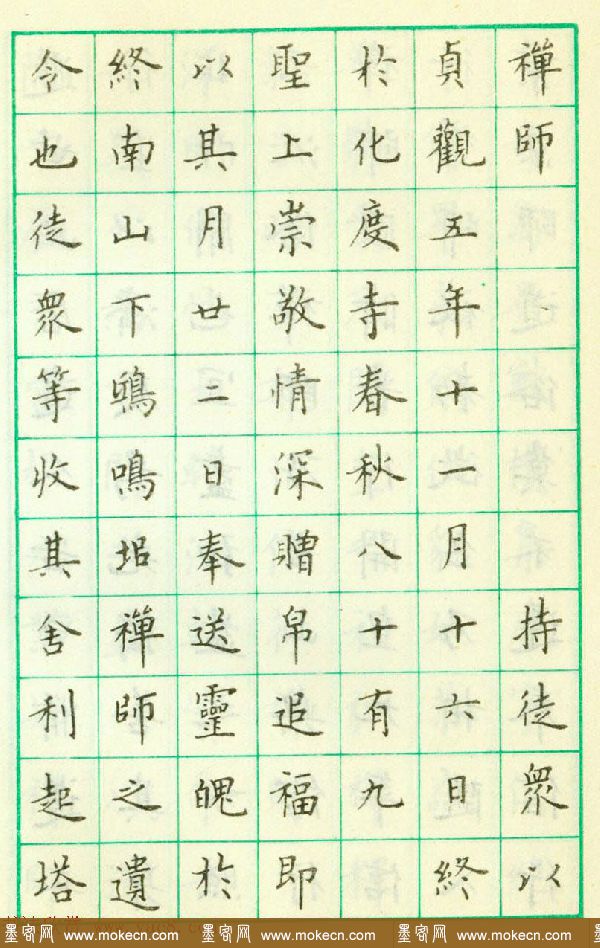 禪師持徒衆以
貞觀五年十一月十六日終
於化度寺春秋八十有九
聖上崇敬情深贈帛追福即
以其月廿二日奉送靈魄於
終南山下鴟鳴埠禪師之遺
令也徒衆等收其舍利起塔
墨客网 www.mokecn.com 墨客网 www.mokecn.com 墨客网 www.mokecn.com